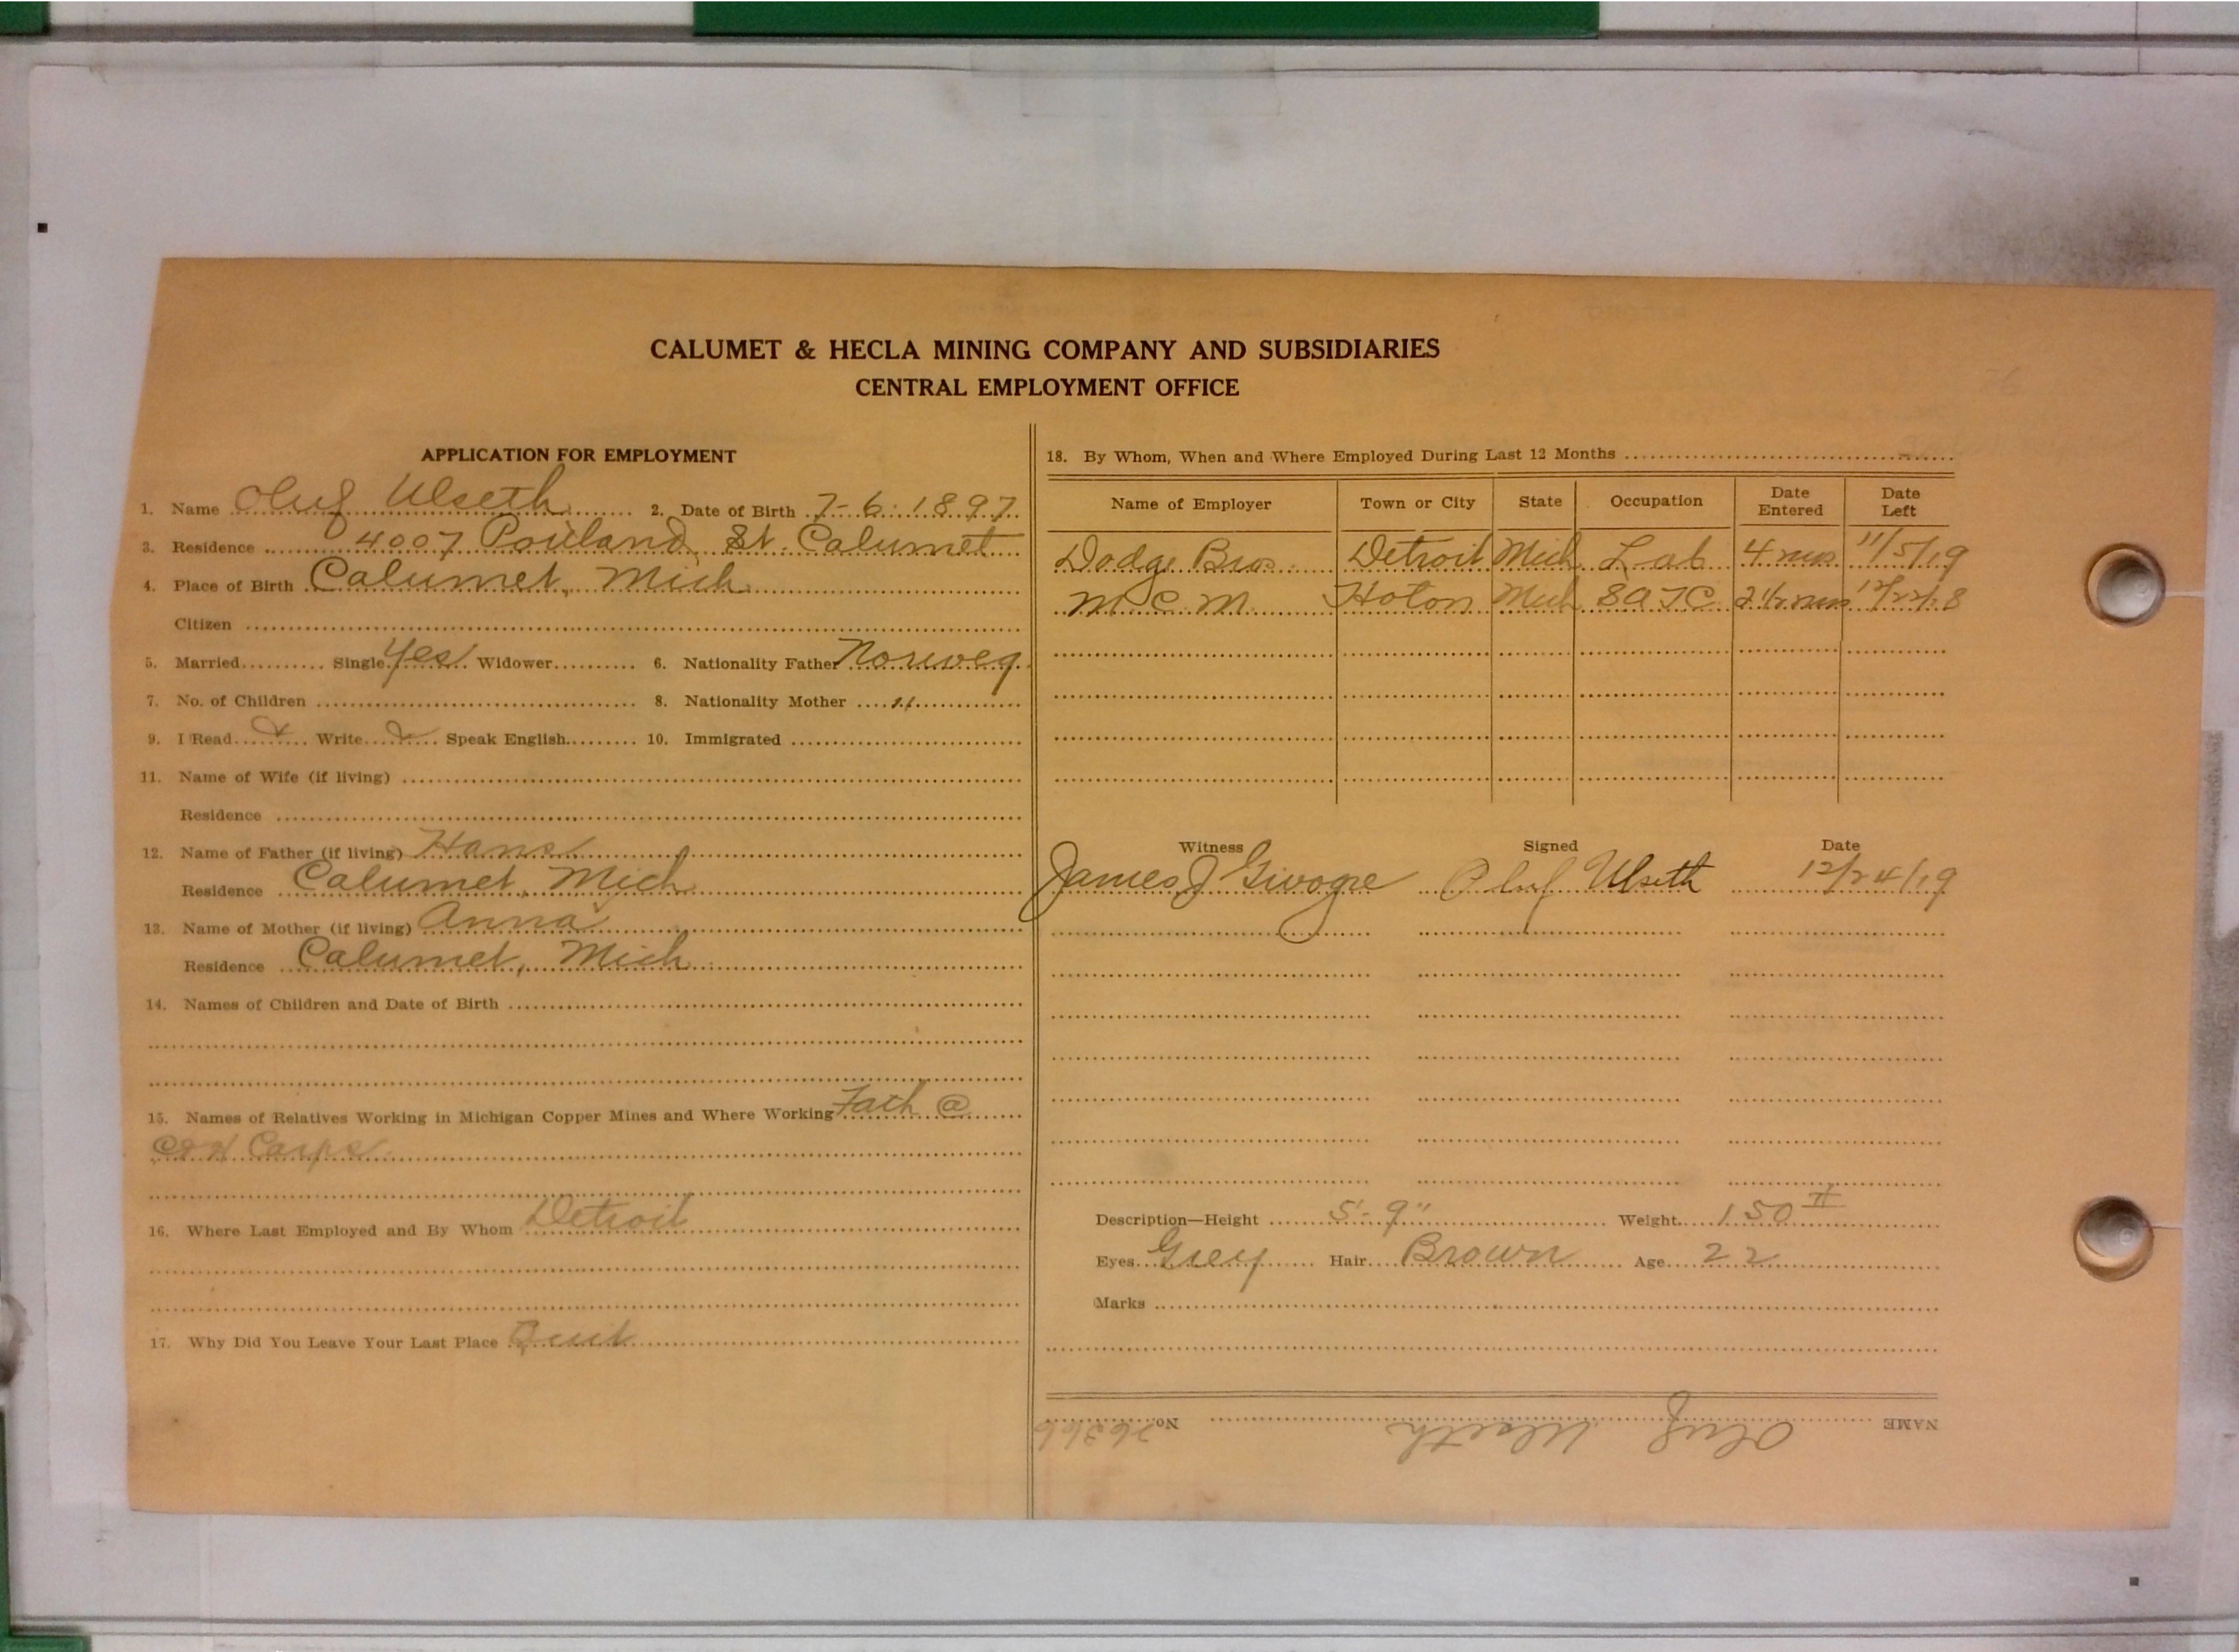 CALUMET & HECLA MINING COMPANY AND SUBSIDIARIES
CENTRAL EMPLOYMENT OFFICE
APPLICATION FOR EMPLOYMENT
1. Name Oluf Ulseth 2. Date of Birth 7-6-1897
3. Residence 4007 St. Calumet
4. Place of Birth Calumet, Mich
Citizen
5. Married Single Yes Widower 6. Nationality Father Norweg
7. No. of Children 8. Nationality Mother "
9. I Read Write Speak English 10. Immigrated
11. Name of Wife (if living)
Residence
12. Name of Father (if living) Hans
Residence Calumet, Mich
13. Name of Mother (if living) Anna
Residence Calumet, Mich
14. Names of Children and Date of Birth
15. Names of Relatives Working in Michigan Copper Mines and Where Working Fath @
C&H
16. Where Last Employed and By Whom Detroit
17. Why Did You Leave Your Last Place Quit
18. By Whom, When and Where Employed During Last 12 Months
Name of Employer Town or City State Occupation Date Entered Date Left
Dodge Bros Detroit Mich Lab 4 mos 11/5/19
M C M Hoton Mich SATC 2 1/2 mos 12/22/18
Witness Signed Date
James J Oluf Ulseth 12/24/19
Description—Height 5'-9" Weight 150 #
Eyes Grey Hair Brown Age 22
Marks
NAME Oluf Ulseth No. 26366